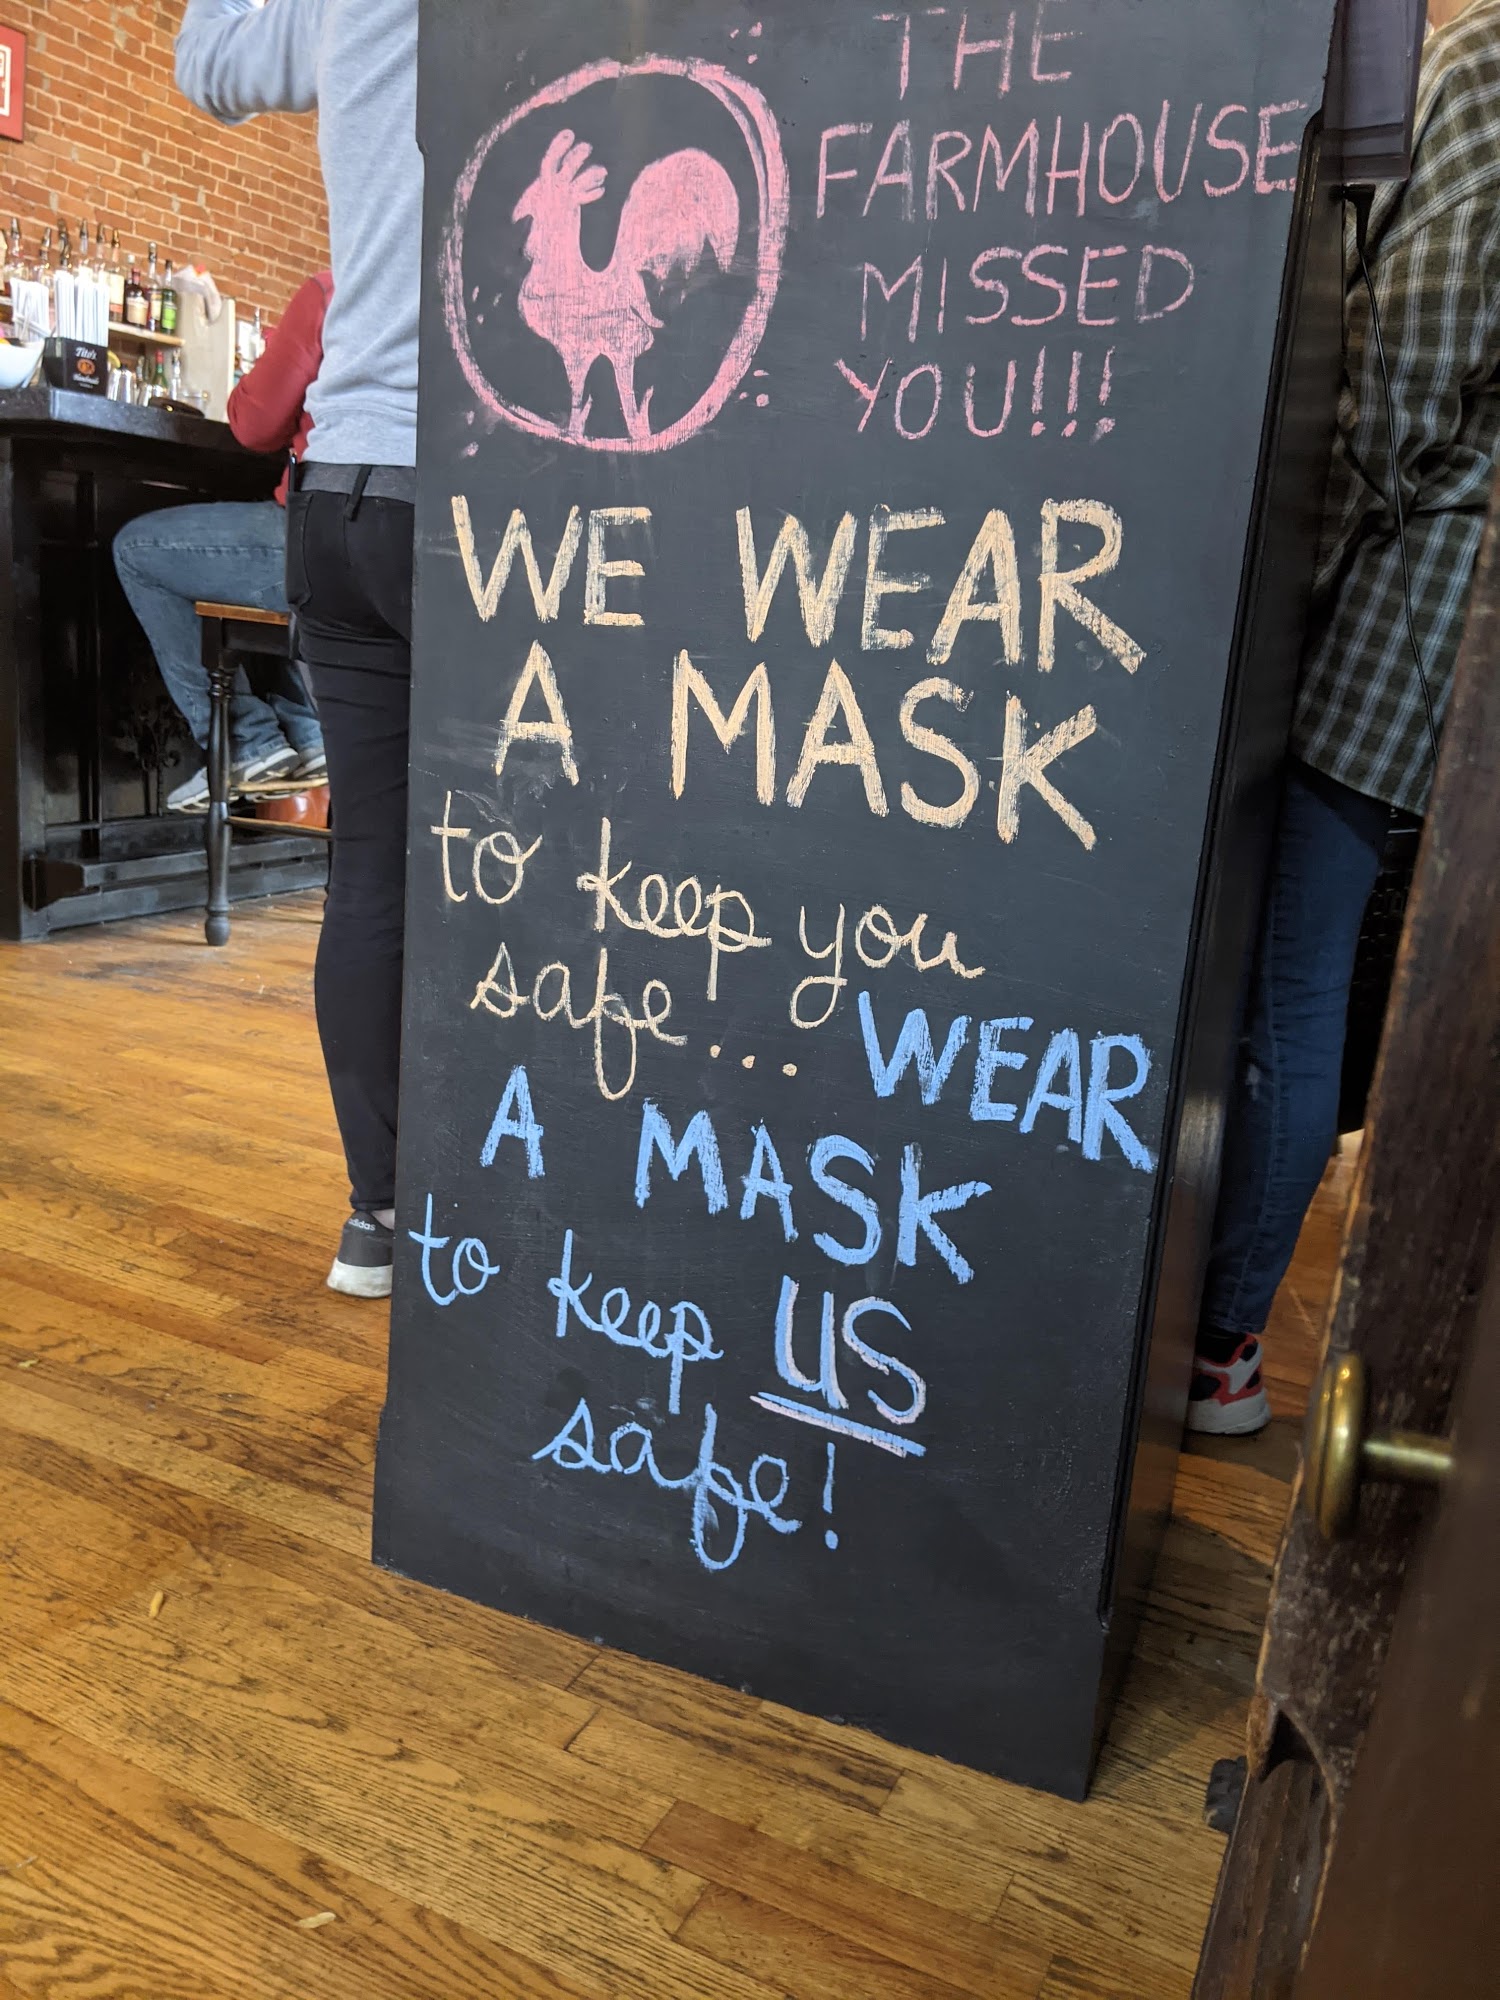 THE
FARMHOUSE
MISSED
YOU!!!
WE WEAR
A MASK
to keep you
safe... WEAR
A MASK
to keep US
safe!
Tito's
adidas